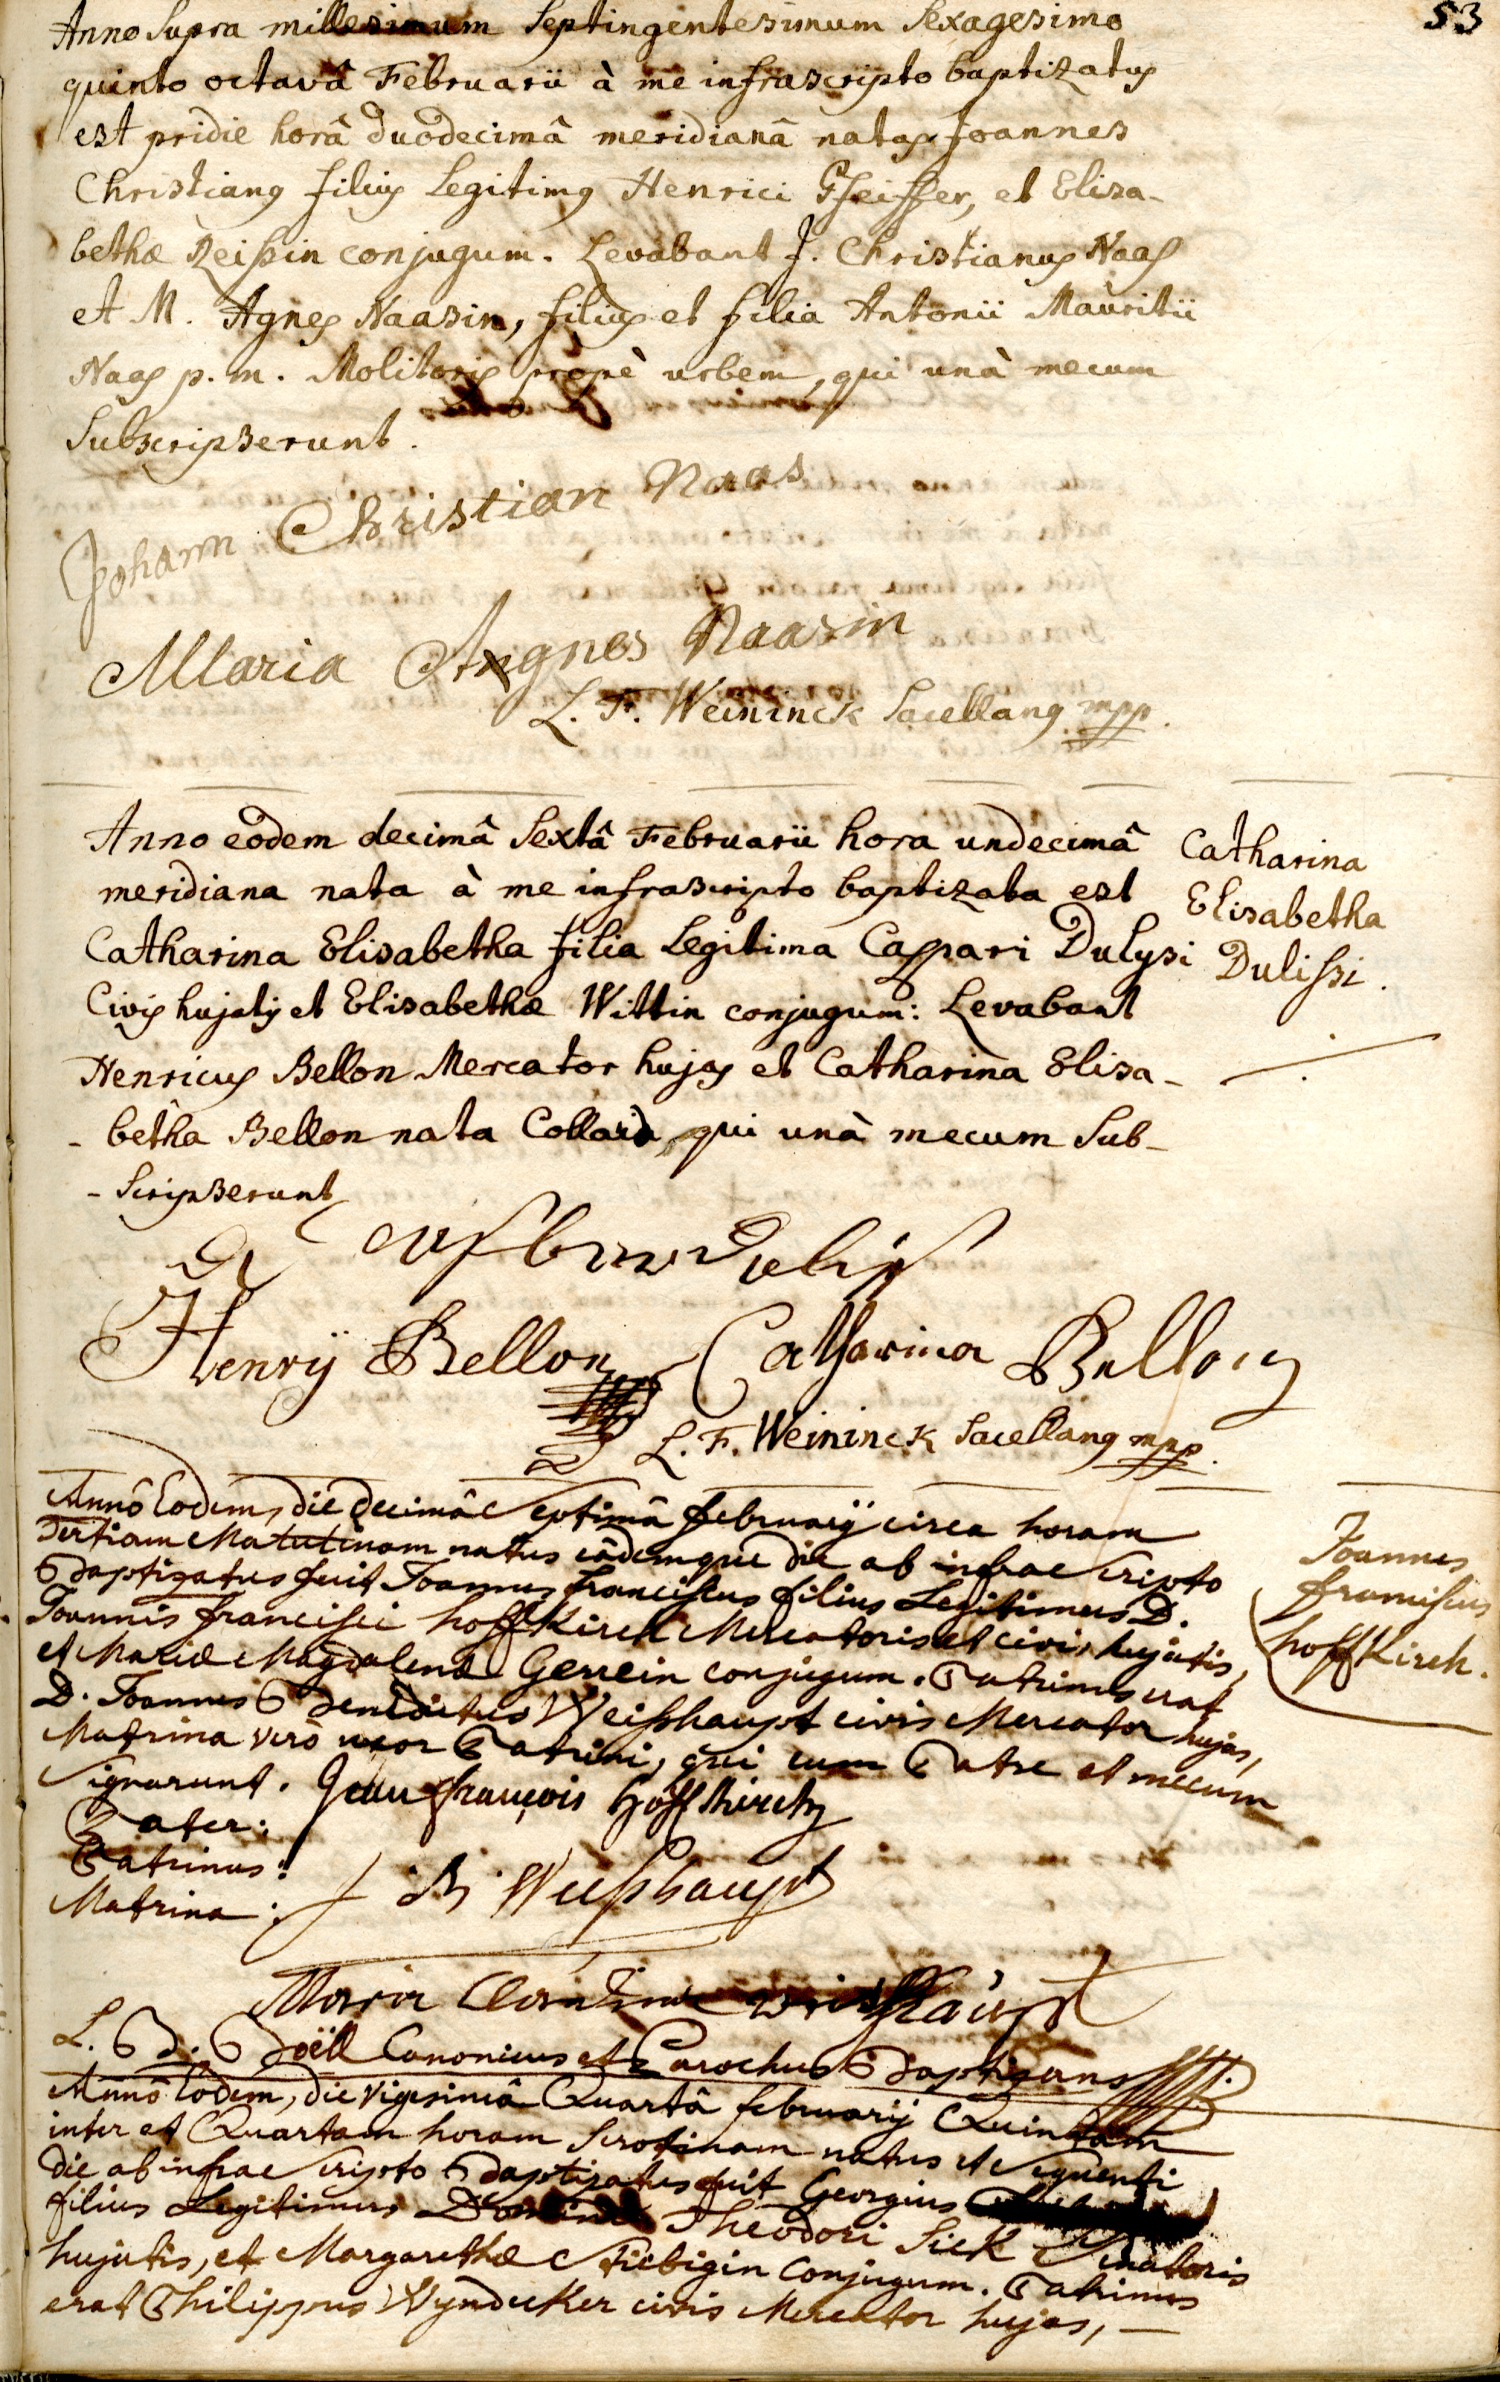 53
Anno Supra millesimum Septingentesimum Sexagesimo
quinto octavâ Februarii à me infrascripto baptizatus
est pridie horâ duodecimâ meridianâ natus Joannes
Christianus filius Legitimus Henrici Pfeiffer, et Elisa-
bethæ Reissin conjugum. Levabant J. Christianus Naas
et M. Agnes Naasin, filius et filia Antonii Mauritii
Naas p. m. Molitoris propè urbem, qui unà mecum
Subscripserunt.
Johann Christian Naas
Maria Angnes Naasin
L. F. Weininck Sacellanus mpp.
Anno eodem decimâ Sextâ Februarii hora undecimâ
meridiana nata à me infrascripto baptizata est
Catharina Elisabetha filia Legitima Caspari Dulysi
Civis hujatis et Elisabethæ Wittin conjugum: Levabant
Henricus Bellon Mercator hujas et Catharina Elisa-
- betha Bellon nata Collard, qui unà mecum Sub-
- Scripserunt
Catharina
Elisabetha
Dulissi.
Henrÿ Bellon Catharina Bellon
L. F. Weininck Sacellanus mpp.
Annô Eodem, die decimâ Septimâ februarÿ circa horam
tertiam Matutinam natus eâdemque die ab infra Scripto
Baptizatus fuit Joannes franciscus filius Legitimus D.
Joannis francisci hoffKirch Mercatoris et civis hujatis,
et Mariæ Magdalenæ Gerrein conjugum. Patrinus erat
D. Joannes Benedictus Weisshaupt civis Mercator hujas,
Matrina verò uxor Patrini, qui cum Patre et mecum
Signarunt. Jean françois Hoffkirch
Pater:
Patrinus: J. B. Weisshaupt
Matrina:
Joannes
franciscus
hoffKirch.
Maria Weisshaupt
L. B. Boëll Canonicus et Parochus Baptizans
Annô Eodem, die Vigesimâ Quartâ februarij Quintam
inter et Quartam horam Serotinam natus et Sequenti
die ab infra Scripto Baptizatus fuit Georgius
filius Legitimus Domini Theodori Sick Senatoris
hujatis, et Margarethæ Fiebigin Conjugum. Patrinus
erat Philippus Wyndecker civis Mercator hujas,